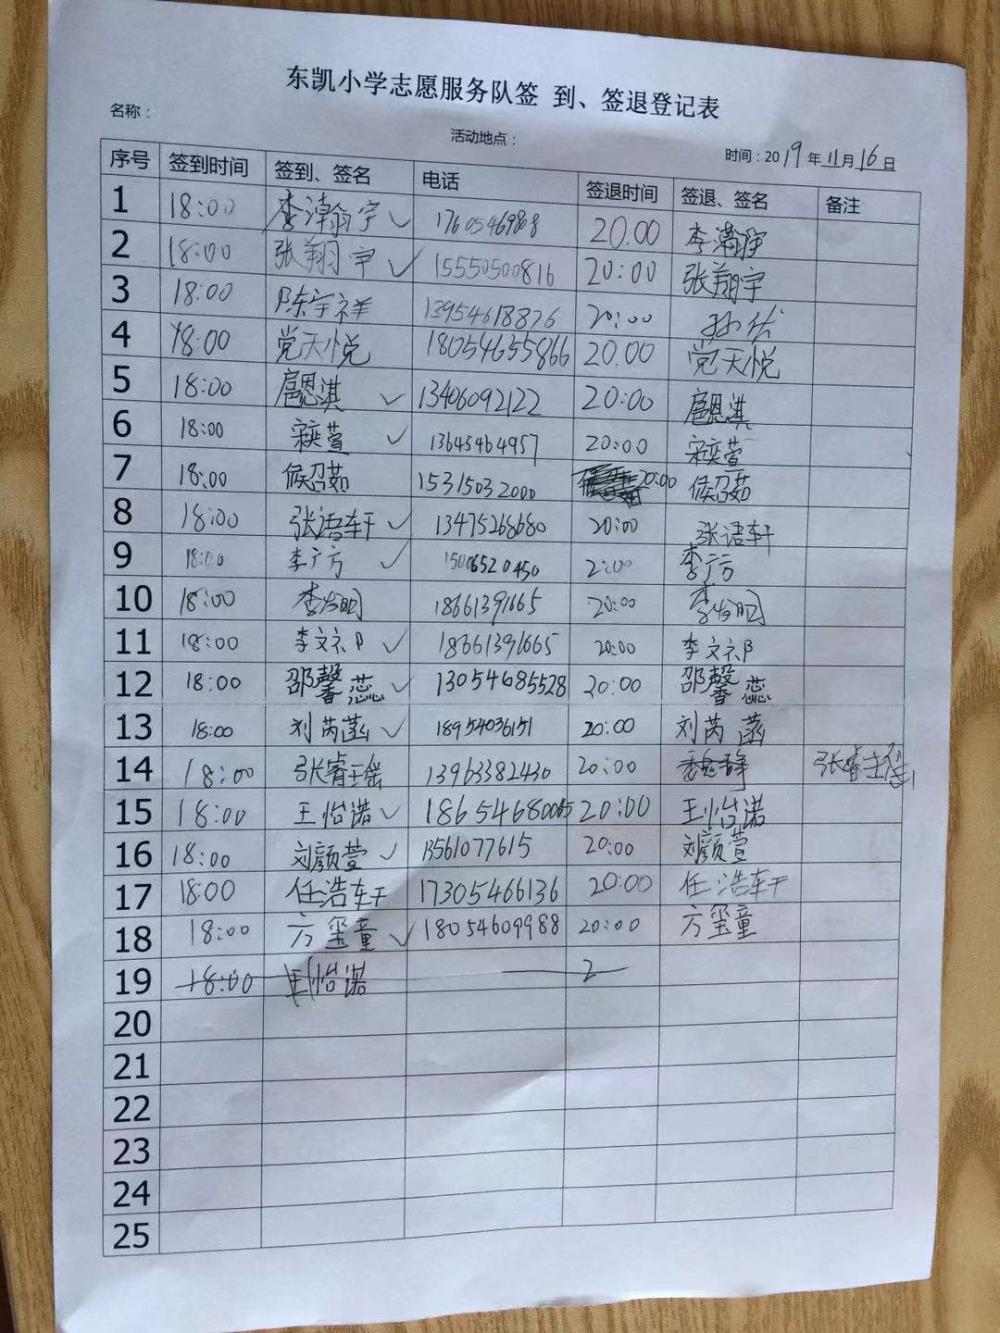 东凯小学志愿服务队签 到、签退登记表
名称：
活动地点：
时间：2019年11月16日
序号 签到时间 签到、签名 电话 签退时间 签退、签名 备注
1 18:00 李瀚宇 ✓ 17605469808 20.00 李瀚宇
2 18:00 张翔宇 ✓ 15550500816 20:00 张翔宇
3 18:00 陈宇祥 13954618876 20:00
4 18:00 党天悦 18054655866 20.00 党天悦
5 18:00 扈恩淇 ✓ 13406092122 20:00 扈恩淇
6 18:00 宋奕萱 ✓ 13645464957 20:00 宋奕萱
7 18:00 侯召茹 15315032000 20:00 侯召茹
8 18:00 张语轩 ✓ 13475268680 20:00 张语轩
9 18:00 李广方 ✓ 15006520450 2:00 李广方
10 18:00 18661391665 20:00
11 18:00 李文祁 ✓ 18661391665 20:00 李文祁
12 18:00 邵馨蕊 ✓ 13054685528 20:00 邵馨蕊
13 18:00 刘芮菡 ✓ 18954036151 20:00 刘芮菡
14 18:00 张睿瑶 13963382430 20:00 张睿瑶
15 18:00 王怡诺 ✓ 18654680065 20:00 王怡诺
16 18:00 刘颜萱 ✓ 13561077615 20:00 刘颜萱
17 18:00 任浩轩 17305466136 20:00 任浩轩
18 18:00 方玺童 ✓ 18054609988 20:00 方玺童
19 18:00 王怡诺 2
20
21
22
23
24
25